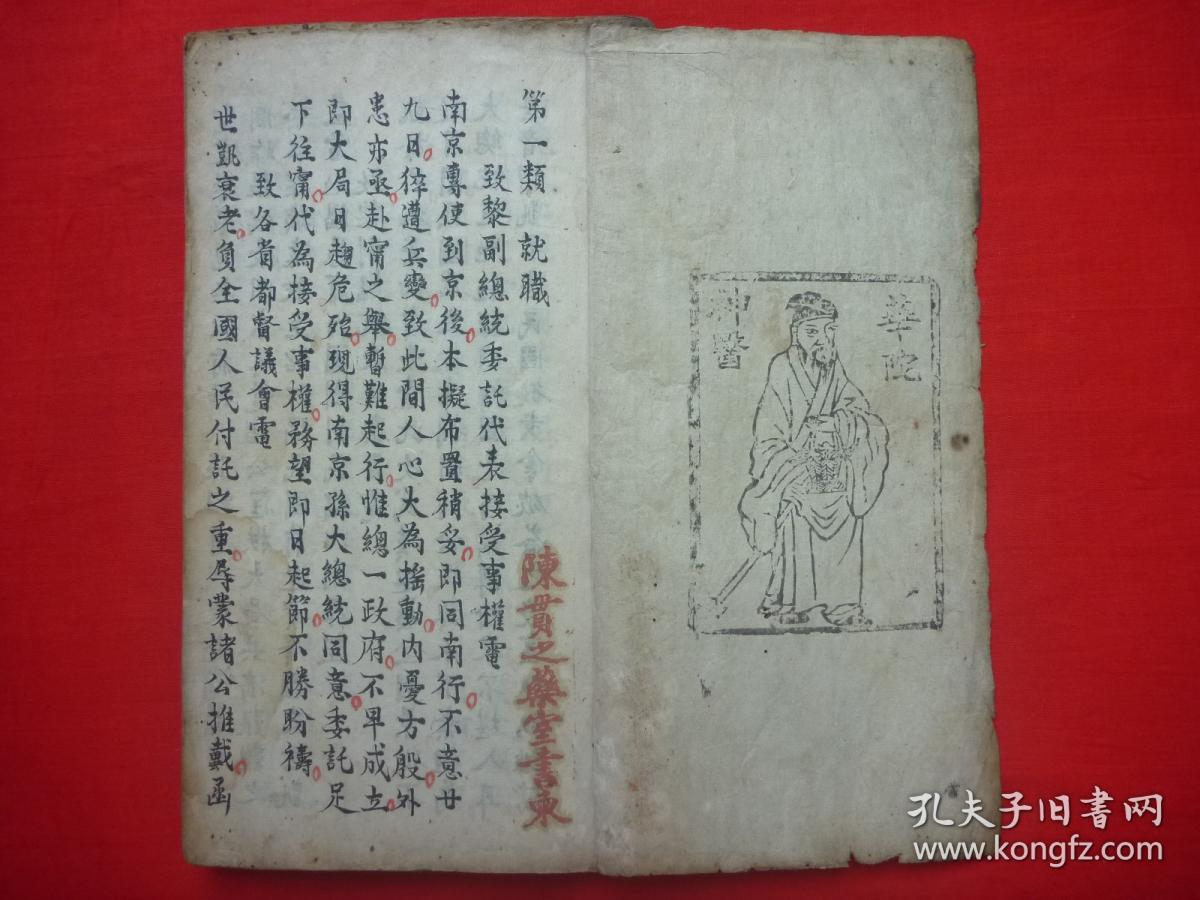 華陀
神醫
第一類 就職
致黎副總統委託代表接受事權電
南京專使到京後本擬布置稍妥即同南行不意廿
九日猝遭兵變致此間人心大為搖動內憂方殷外
患亦亟赴甯之舉暫難起行惟總一政府不早成立
即大局日趨危殆現得南京孫大總統同意委託足
下往甯代為接受事權務望即日起節不勝盼禱
致各省都督議會電
世凱衰老負全國人民付託之重辱蒙諸公推戴函
陳貫之藥室書柬
孔夫子旧书网
www.kongfz.com